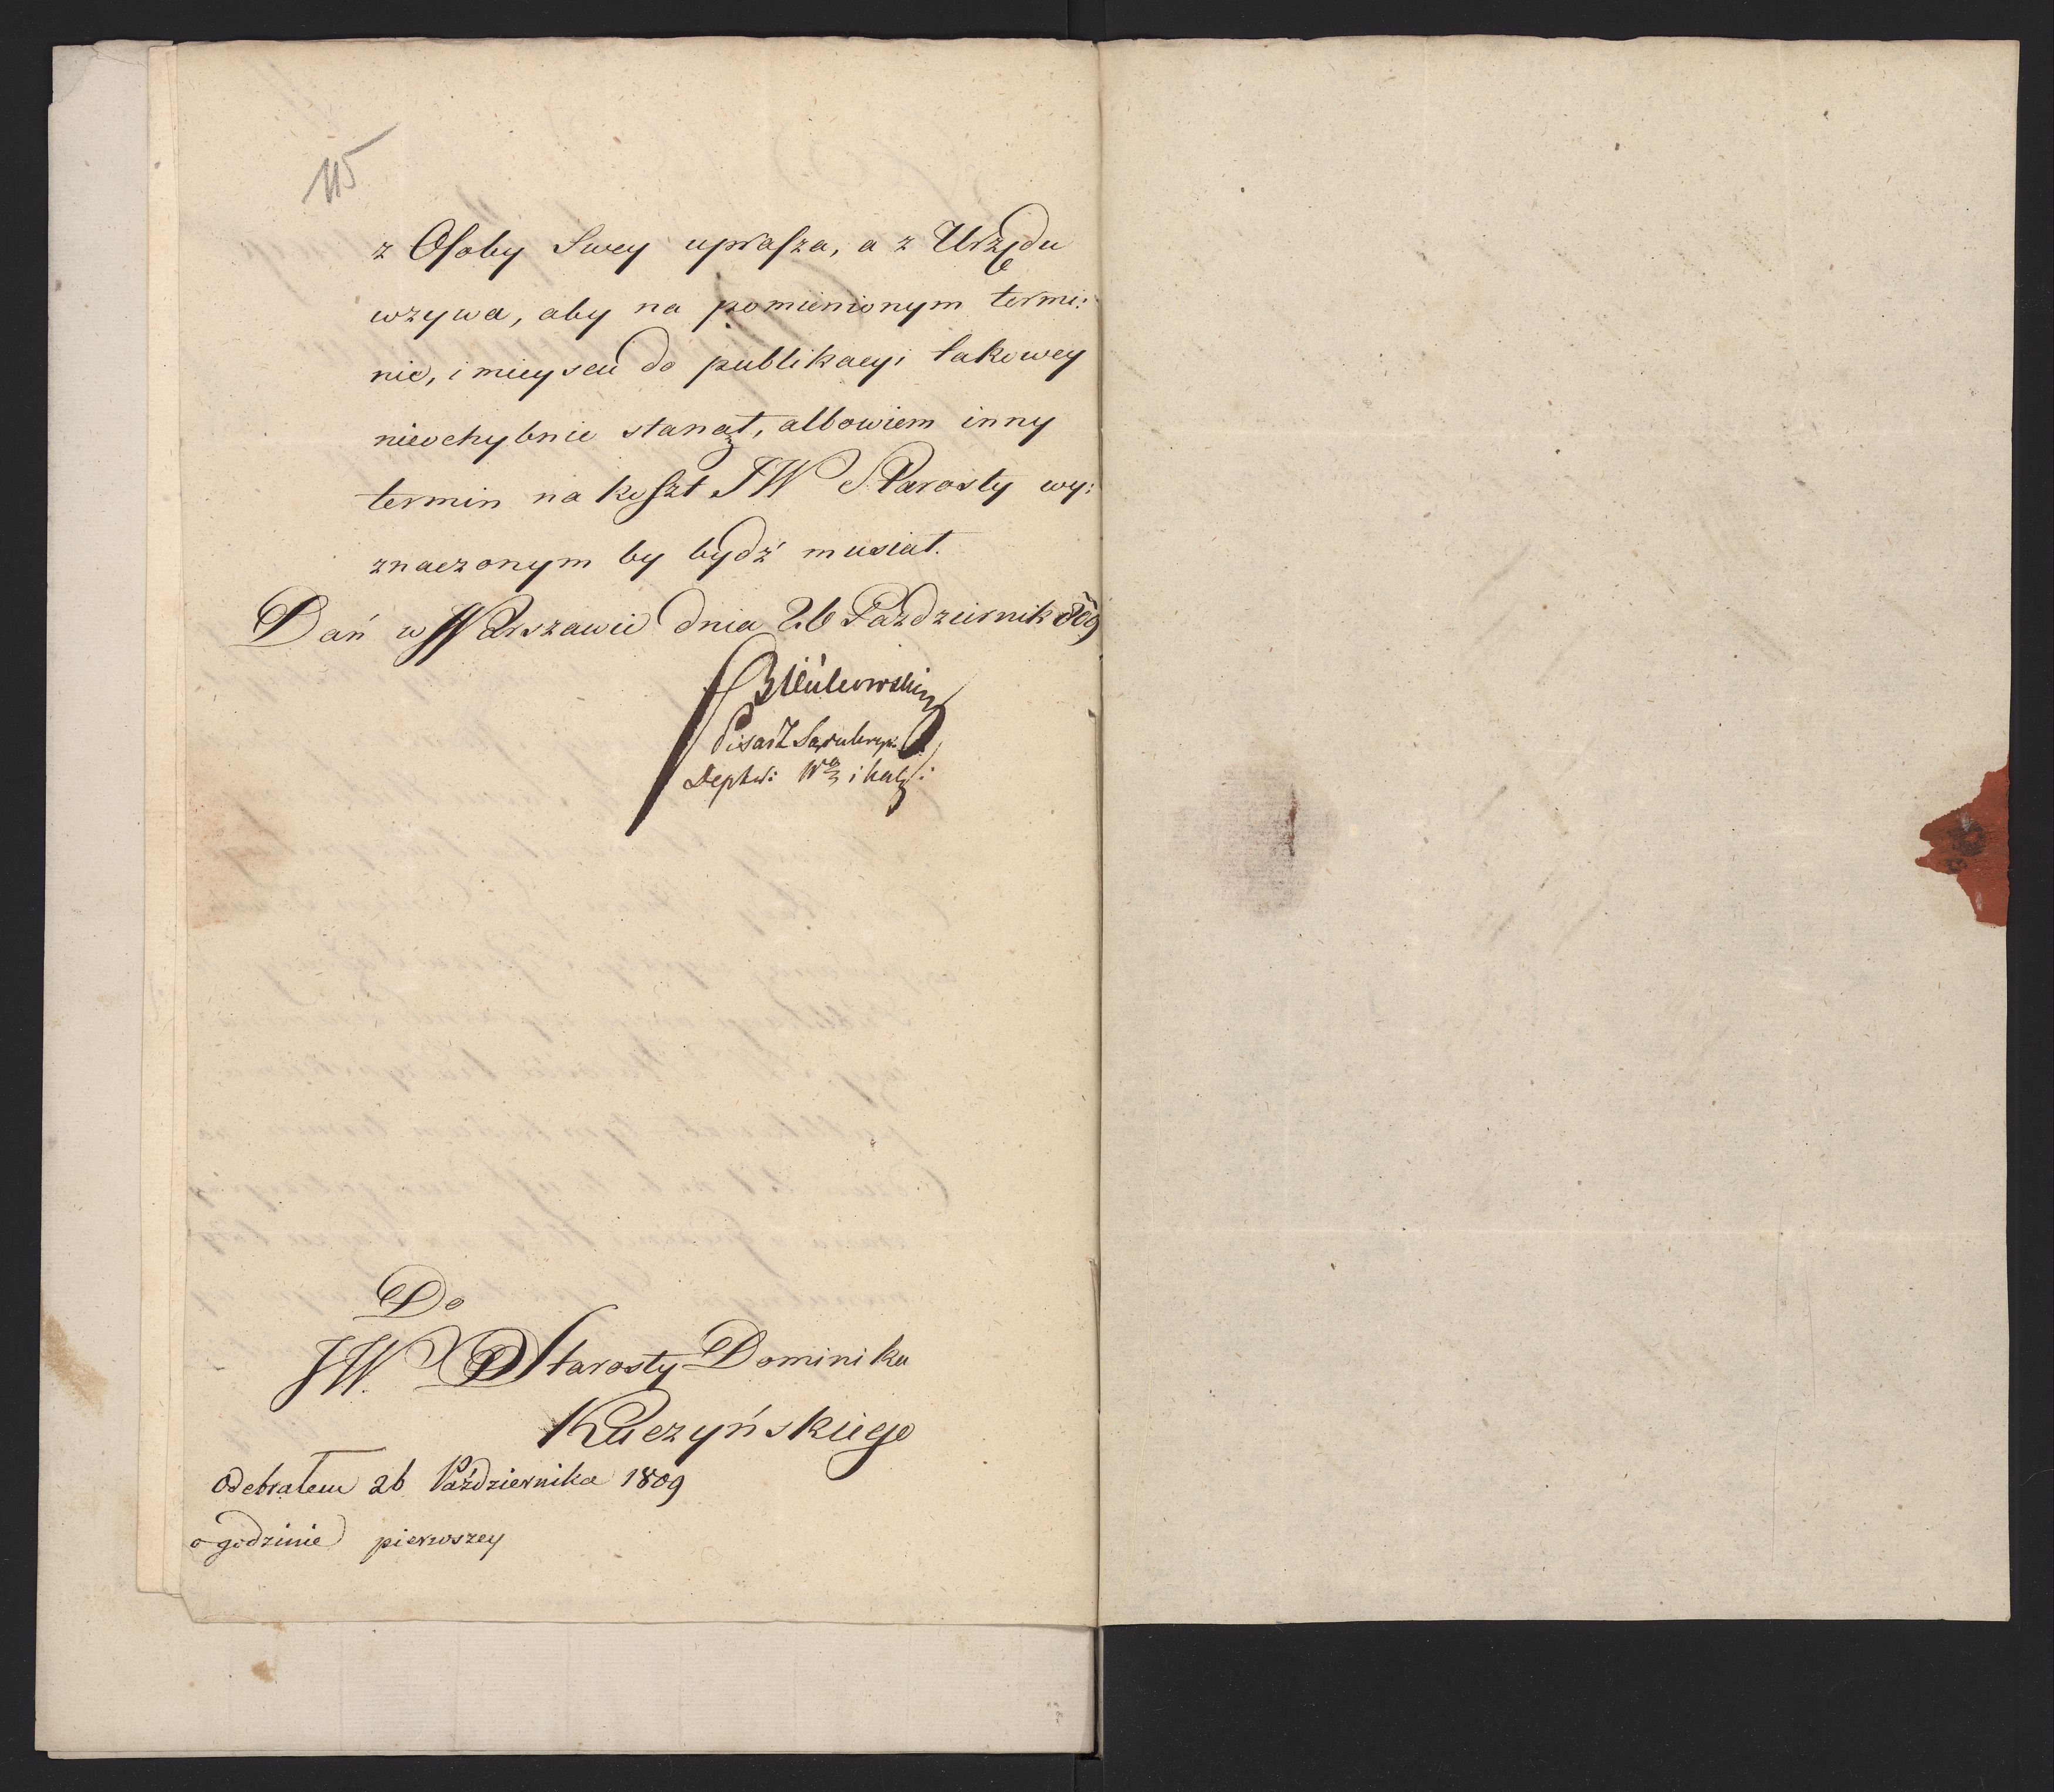 115
z Osoby Swey uprasza, a z Urzędu
wzywa, aby na pomienionym termi:
nie, i mieyscu do publikacyi takowey
nieochybnie stanął, albowiem inny
termin na koszt JW Starosty wy:
znaczonym by bydź musiał.
Dań w Warszawie dnia 26 Październik 809
Pisarz
Deptu: i
Do
JW. Starosty Dominika
Kuczyńskiego
Odebrałem 26 Października 1809
o godzinie pierwszey